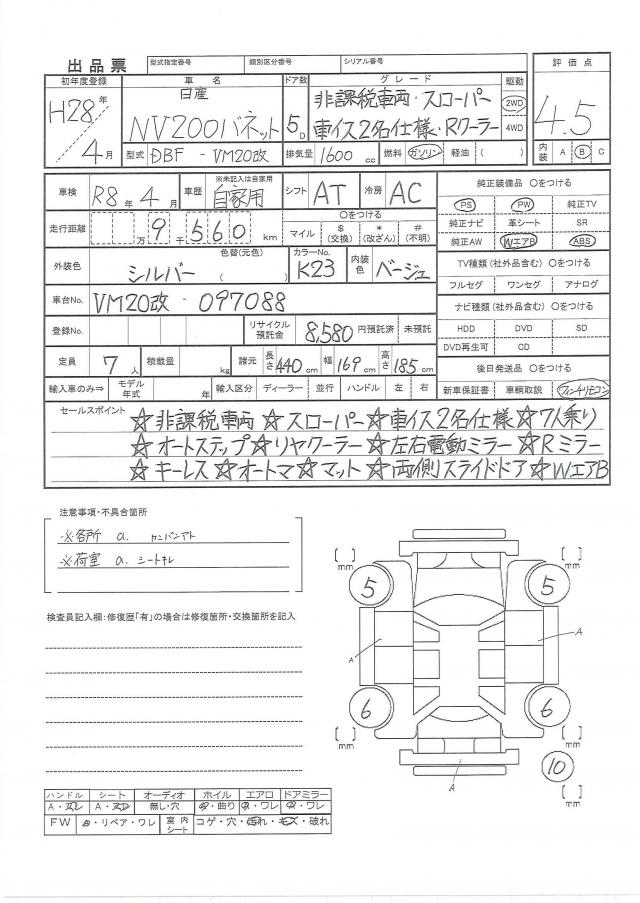 出品票 型式指定番号 類別区分番号 シリアル番号
初年度登録 車名 ドア数 グレード 駆動 評価点
H28年 日産 非課税車両・スローパー 2WD 4.5
4月 NV200バネット 5D 車イス2名仕様・Rクーラー 4WD
型式 DBF - VM20改 排気量 1600cc 燃料 ガソリン 軽油 ( ) 内装 A B C
車検 R8年4月 車歴 ※未記入は自家用 自家用 シフト AT 冷房 AC 純正装備品 ○をつける
PS PW 純正TV
走行距離 万 9千560km ○をつける 純正ナビ 革シート SR
マイル $(交換) *(改ざん) #(不明) 純正AW WエアB ABS
外装色 シルバー 色替(元色) ( ) カラーNo. K23 内装色 ベージュ TV種類(社外品含む)○をつける
フルセグ ワンセグ アナログ
車台No. VM20改 - 097088 ナビ種類(社外品含む)○をつける
登録No. リサイクル預託金 8,580円預託済 未預託 HDD DVD SD
DVD再生可 CD
定員 7人 積載量 kg 諸元 長さ440cm 幅169cm 高さ185cm 後日発送品 ○をつける
輸入車のみ⇒ モデル年式 年 輸入区分 ディーラー 並行 ハンドル 左 右 新車保証書 車輌取説
セールスポイント ☆非課税車両 ☆スローパー☆車イス2名仕様☆7人乗り
☆オートステップ☆リヤクーラー☆左右電動ミラー☆Rミラー
☆キーレス☆オートマ☆マット☆両側スライドドア☆WエアB
注意事項・不具合箇所
※各所 a.
※荷室 a. シートキレ
検査員記入欄:修復歴「有」の場合は修復箇所・交換箇所を記入
[ ] mm [ ] mm
5 5
A A
6 6
[ ] mm [ ] mm
10
A
[ ] mm
ハンドル シート オーディオ ホイル エアロ ドアミラー
A・スレ A・スレ 無し・穴 キズ・曲り キズ・ワレ キズ・ワレ
FW キズ・リペア・ワレ 室内シート コゲ・穴・汚れ・キズ・破れ